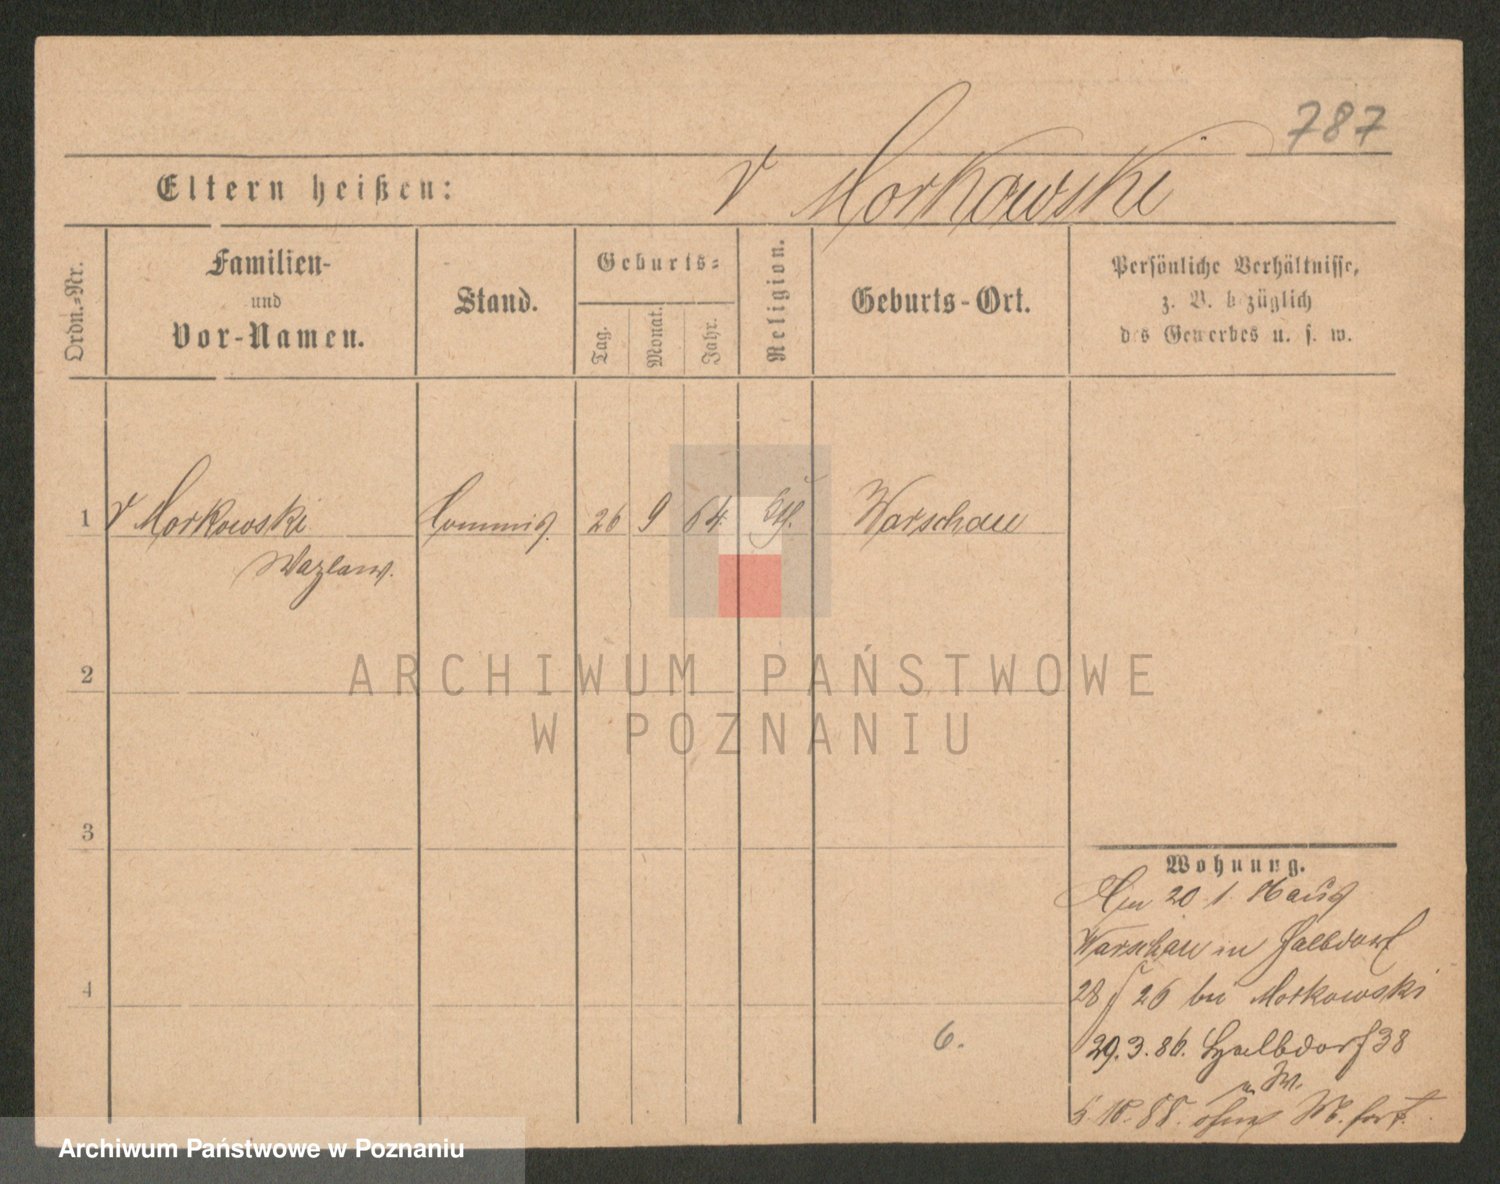 787
Eltern heißen:
v Morkowski
Ordn.-Nr.
Familien-
und
Vor-Namen.
Stand.
Geburts-
Tag.
Monat.
Jahr.
Religion.
Geburts-Ort.
Persönliche Verhältnisse,
z. B. bezüglich
des Gewerbes u. s. w.
1 v Morkowski Commis 26 9 64. Warschau
Wazlaw.
2
ARCHIWUM PAŃSTWOWE
W POZNANIU
3
Wohnung.
20 1
Warschau in Halbdorf
4
28 / 26 bei Morkowski
29.3.86. Halbdorf 38
6.
5.10.88. ohne fort.
Archiwum Państwowe w Poznaniu